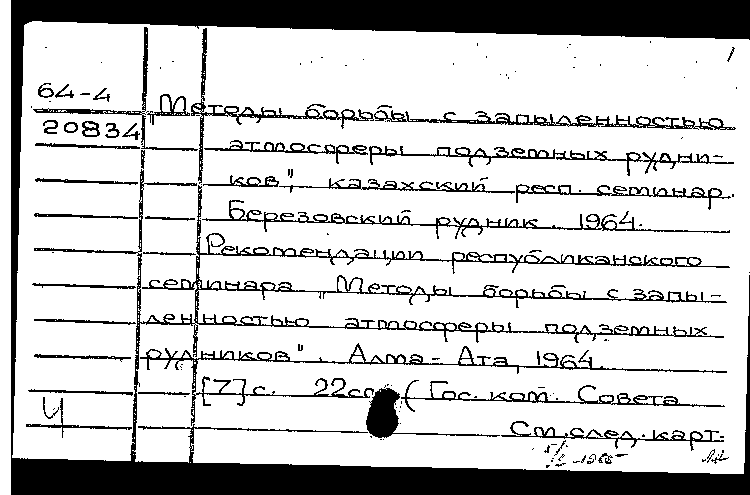 1
64-4
20834
"Методы борьбы с запыленностью
атмосферы подземных рудни-
ков", казахский респ. семинар.
Березовский рудник. 1964.
Рекомендации республиканского
семинара "Методы борьбы с запы-
ленностью атмосферы подземных
рудников". Алма-Ата, 1964.
[7] с. 22см (Гос. ком. Совета
Ч
См. след. карт.
1965